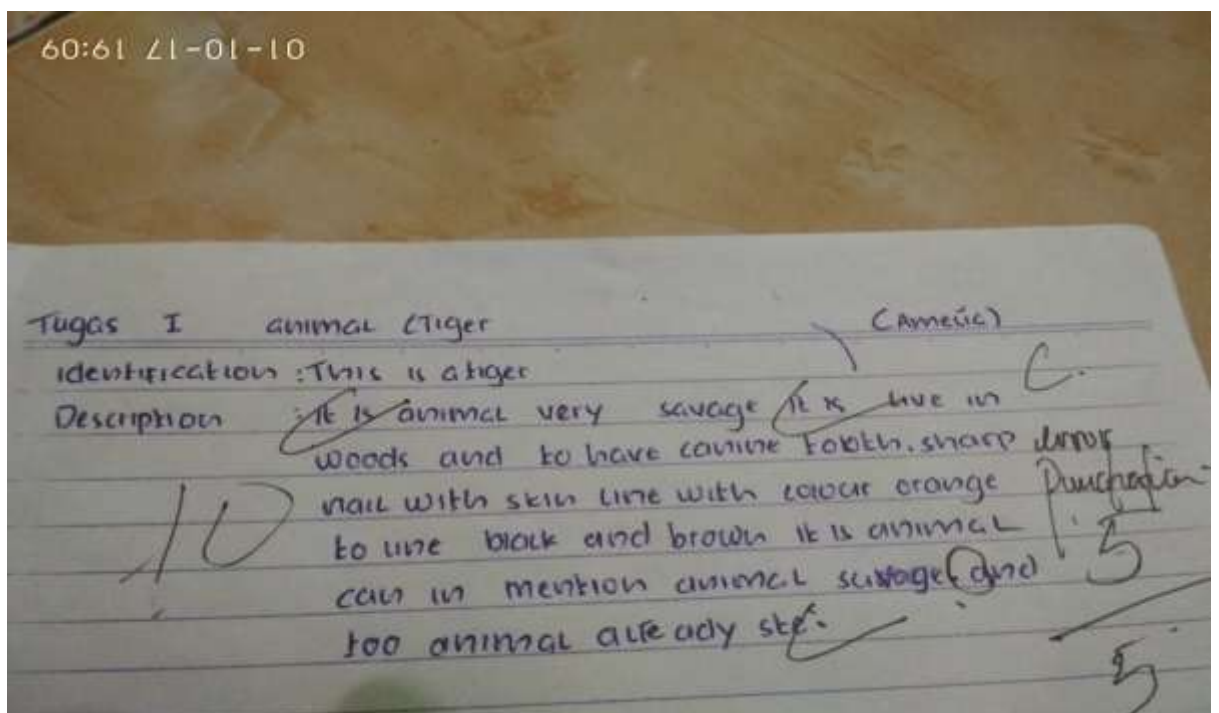 01-10-17 19:09
Tugas I animal (Tiger (Amelic)
identification : This is a tiger C.
Description : it is animal very savage it is live in
woods and to have canine tooth. sharp error
nail with skin line with colour orange Punctuation
to line black and brown it is animal 5
can in mention animal savage and
too animal already
10
5